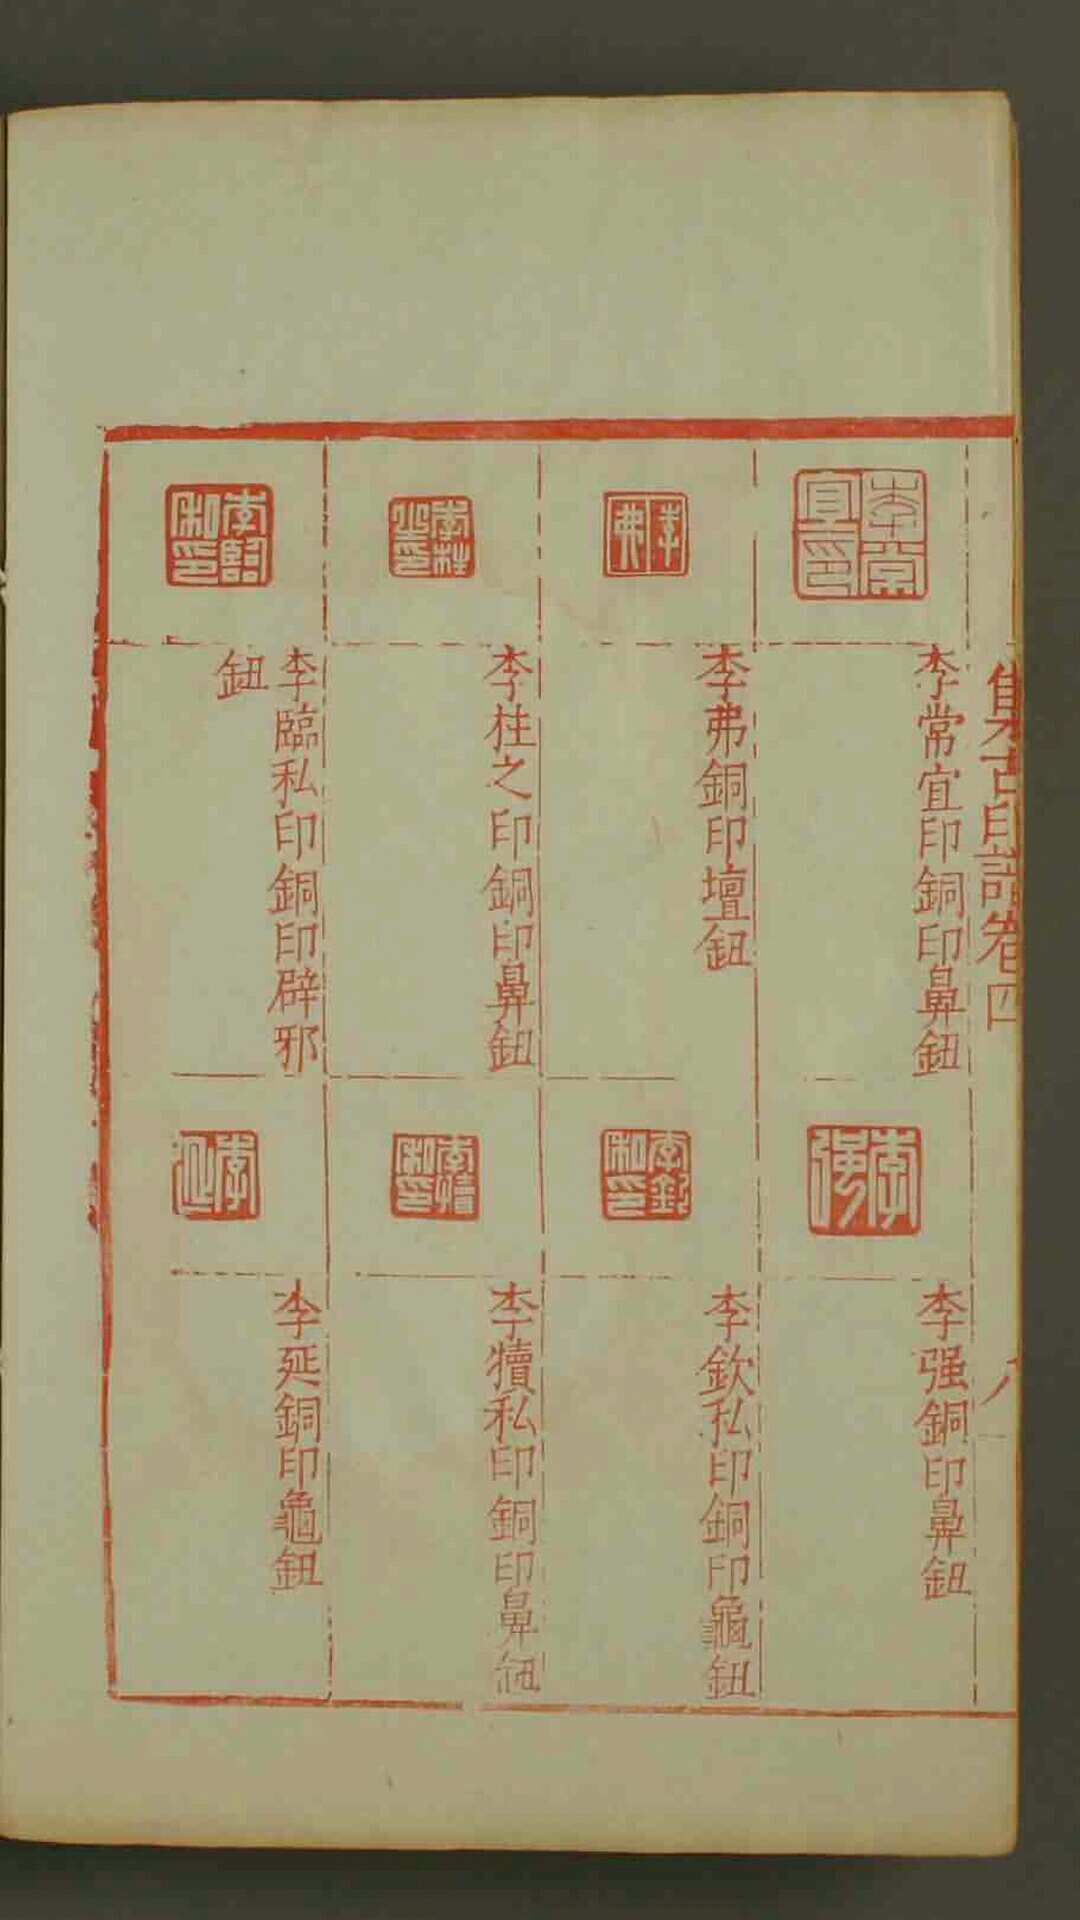 集古印譜卷四
李常宜印銅印鼻鈕
李弗銅印壇鈕
李柱之印銅印鼻鈕
李臨私印銅印辟邪
鈕
李强銅印鼻鈕
李欽私印銅印龜鈕
李犢私印銅印鼻鈕
李延銅印龜鈕